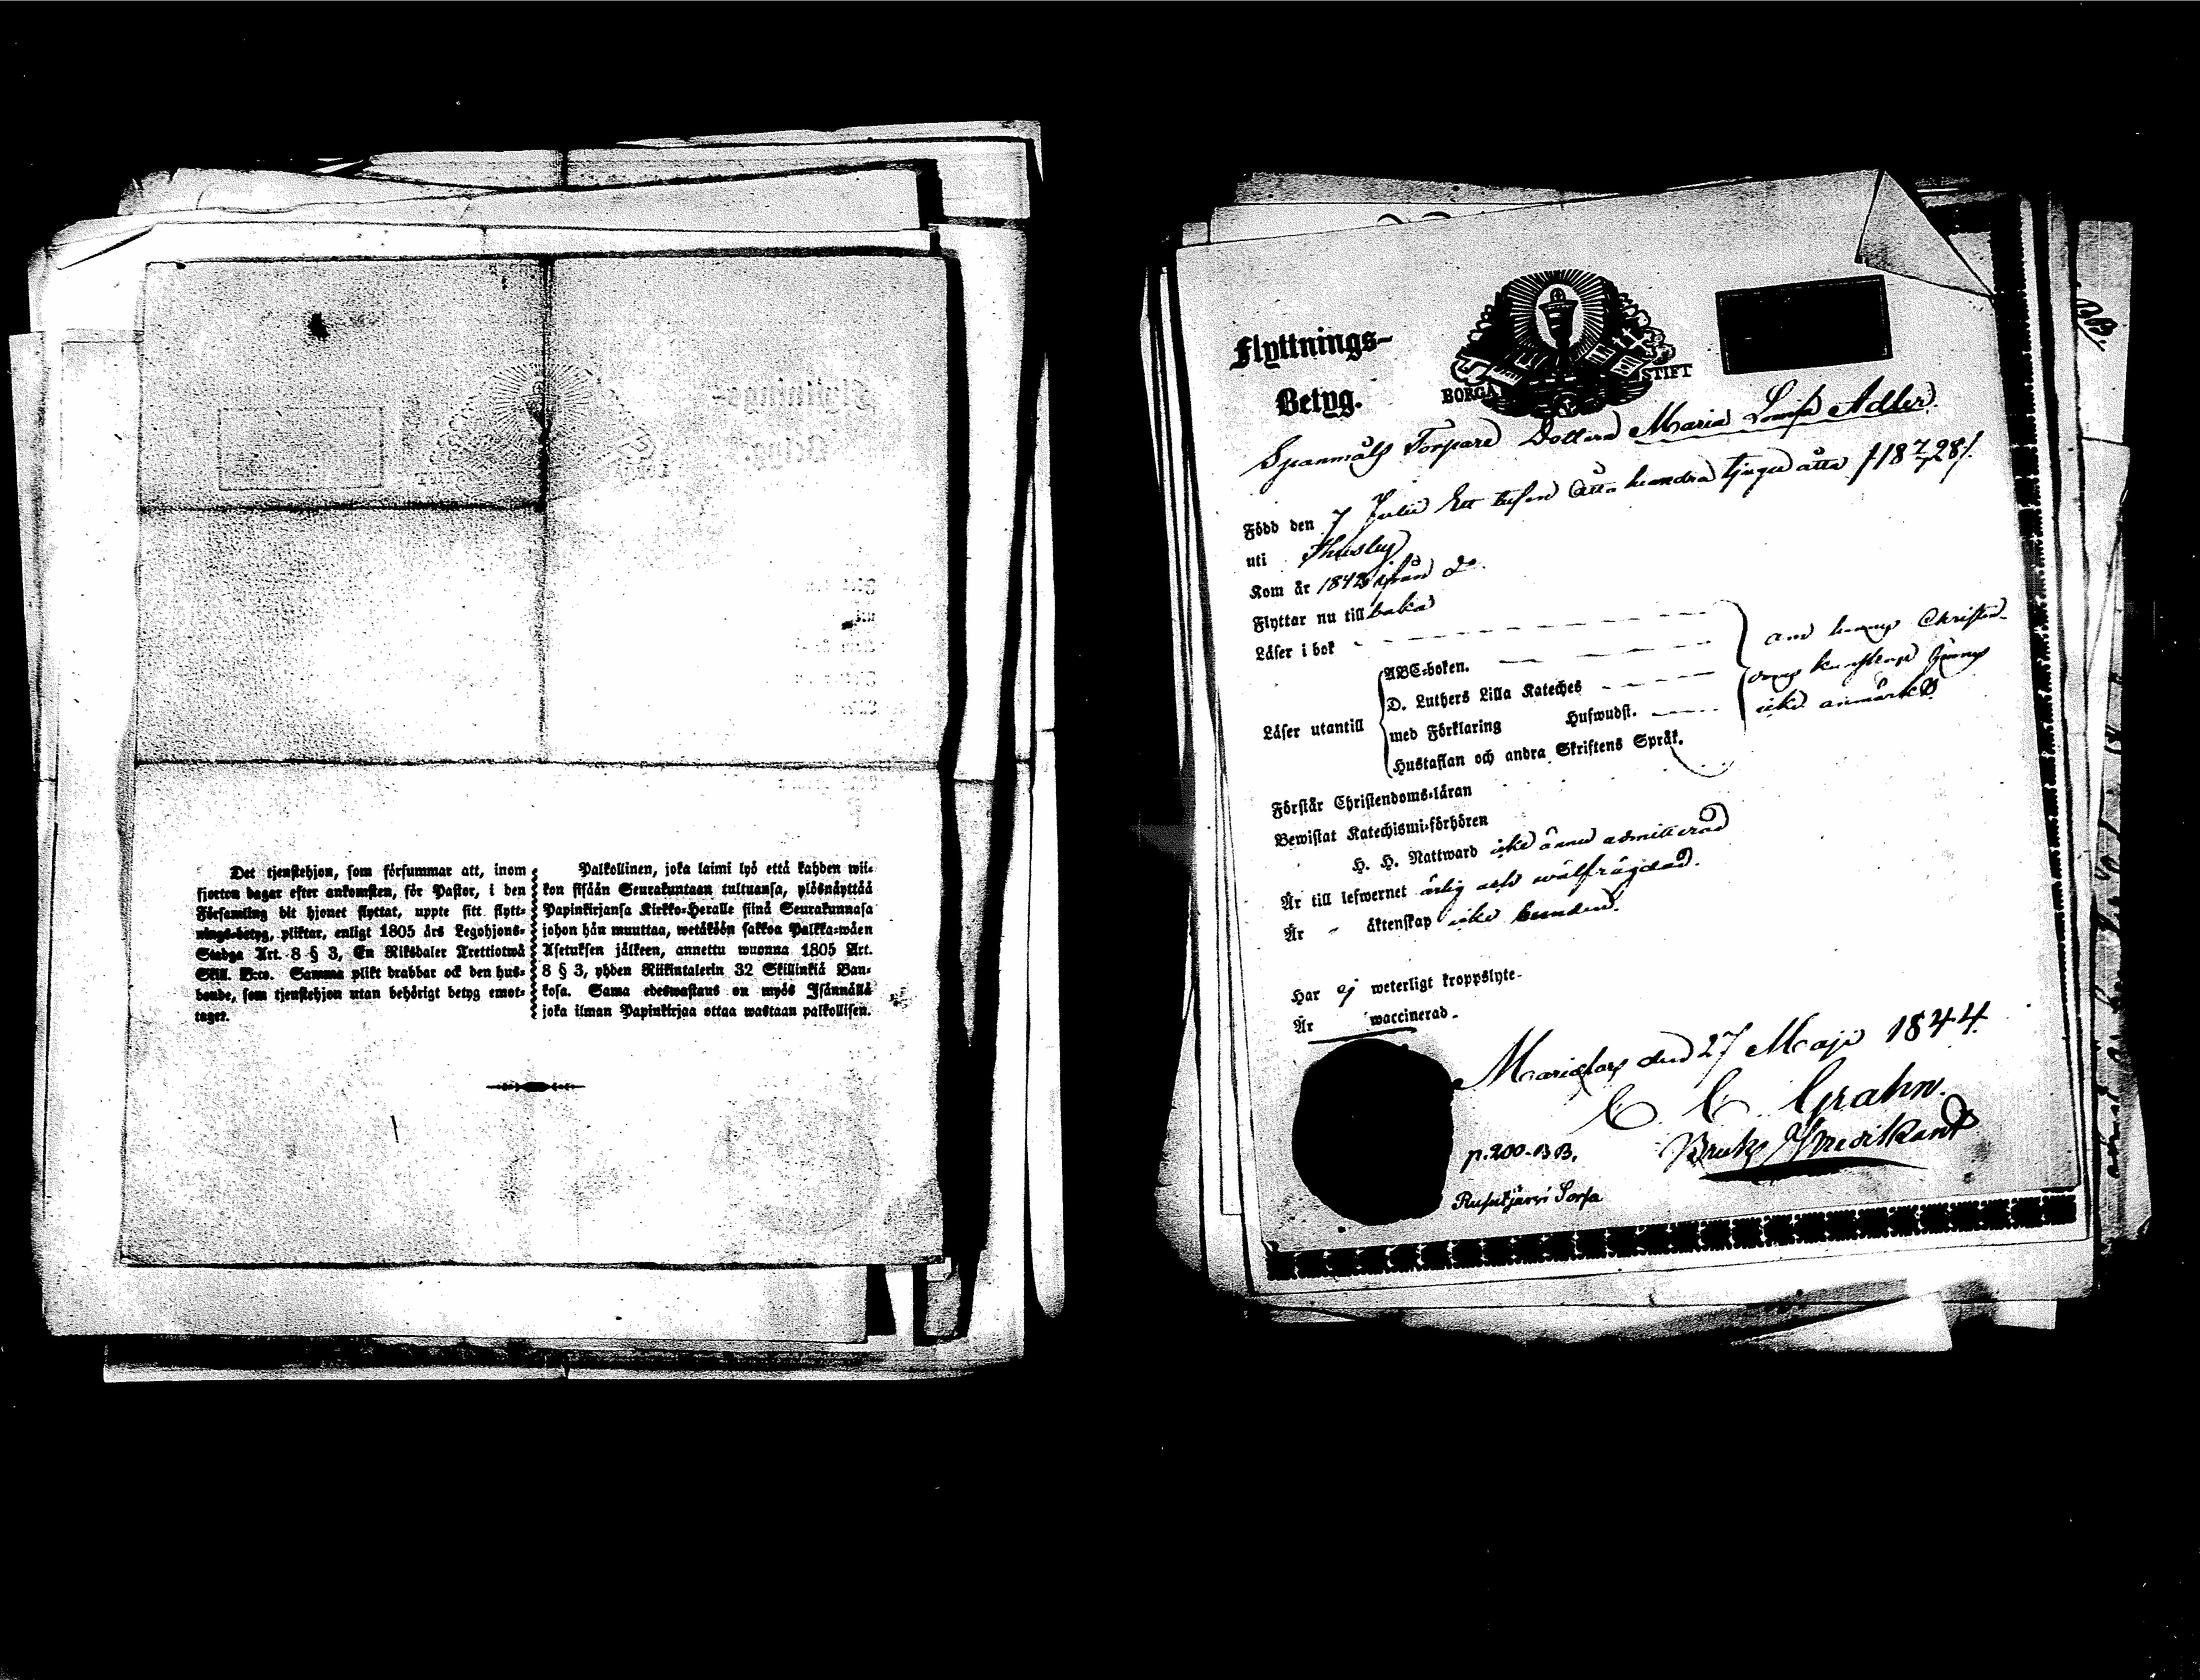 Det tjenstehjon, som försummar att, inom
fjorton dagar efter ankomsten, för Pastor, i den
Församling dit hjonet flyttat, uppte sitt flytt-
nings-betyg, pliktar, enligt 1805 års Legohjons-
Stadga Art. 8 § 3, En Riksdaler Trettiotwå
Skill. B:co. Samma plikt drabbar ock den hus-
bonde, som tjenstehjon utan behörigt betyg emot-
taget.
Palkollinen, joka laimi lyö että kahden wii-
kon sisään Seurakuntaan tultuansa, ylösnäyttää
Papinkirjansa Kirkko-Heralle siinä Seurakunnasa
johon hän muuttaa, wetäköön sakkoa Palkka-wäen
Asetuksen jälkeen, annettu wuonna 1805 Art.
8 § 3, yhden Riikintalerin 32 Skillinkiä Ban-
kosa. Sama edeswastaus on myös Isännällä
joka ilman Papinkirjaa ottaa wastaan palkollisen.
Flyttnings-
Betyg.
BORGÅ STIFT
Spanmåls Torpare Dottern Maria Lovisa Adler
Född den 7 Julii Ett tusen Åtta hundra tjugu åtta /18 7/7 28/.
uti Thusby
Kom år 1842 ifrån do
Flyttar nu till baka
Läser i bok
ABC-boken.
D. Luthers Lilla Kateches
Läser utantill med Förklaring Huswudst.
Hustaflan och andra Skriftens Språk.
om hennes Christen-
doms kunskap finnes
icke anmärkt
Förstår Christendoms-läran
Bewistat Katechismi-förhören
H. H. Nattward icke ännu admitterad
Är till lefwernet ärlig och wälfrägdad.
Är äktenskap icke bunden.
Har ej weterligt kroppslyte
Är waccinerad.
Mariefors den 27 Maji 1844
C C Grahn.
Bruks Predikant
p. 200. BB.
Rusutjärvi Sorfa